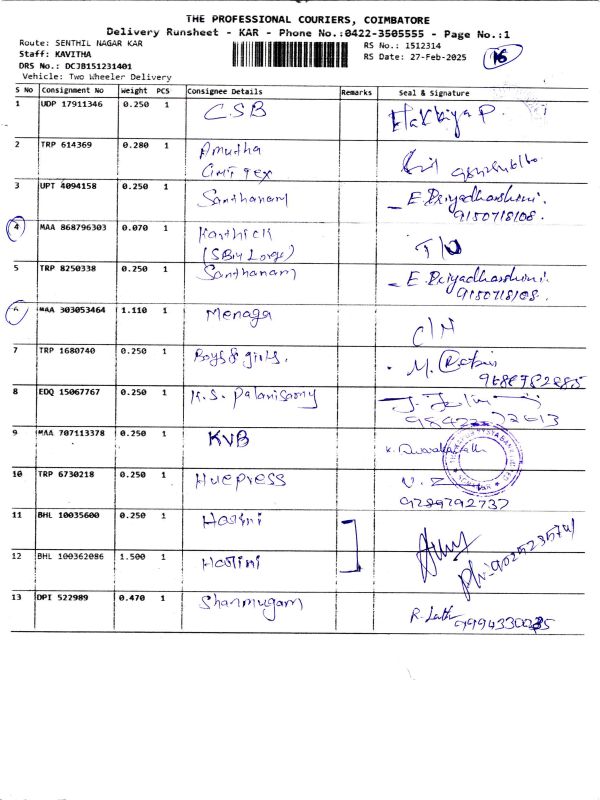 THE PROFESSIONAL COURIERS, COIMBATORE
Delivery Runsheet - KAR - Phone No.:0422-3505555 - Page No.:1
Route: SENTHIL NAGAR KAR
Staff: KAVITHA
DRS No.: DCJB151231401
Vehicle: Two Wheeler Delivery
RS No.: 1512314
RS Date: 27-Feb-2025
16
S No Consignment No Weight PCS Consignee Details Remarks Seal & Signature
1 UDP 17911346 0.250 1 CSB
2 TRP 614369 0.280 1 Amutha
3 UPT 4094158 0.250 1 Santhanam E. Priyadharshini.
9150718108.
4 MAA 868796303 0.070 1 Karthick
5 TRP 8250338 0.250 1 Santhanam E. Priyadharshini.
9150718108.
MAA 303053464 1.110 1 Menaga
7 TRP 1680740 0.250 1 Boys & girls. M.
8 EDQ 15067767 0.250 1 K.S. Palanisamy
9 MAA 707113378 0.250 1 KVB
10 TRP 6730218 0.250 1 Huepress
9789792737
11 BHL 10035600 0.250 1 Hasini
12 BHL 100362086 1.500 1 Hasini
13 DPI 522989 0.470 1 Shanmugam